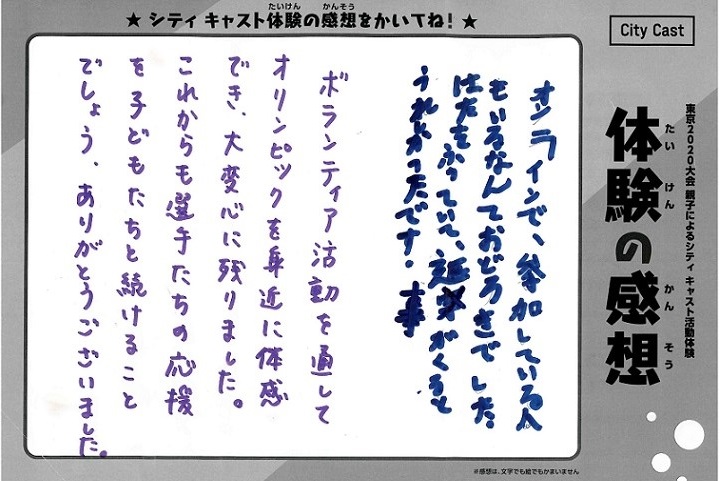 City Cast
東京2020大会 親子によるシティ キャスト活動体験
体験の感想
たい けん かん そう
★ シティ キャスト体験の感想をかいてね! ★
たいけん かんそう
オンラインで、参加している人
もいるなんておどろきでした。
はたをふっていて、返がくると
うれしかったです! 事
ボランティア活動を通して
オリンピックを身近に体感
でき、大変心に残りました。
これからも選手たちの応援
を子どもたちと続けること
でしょう。ありがとうございました。
※感想は、文字でも絵でもかまいません